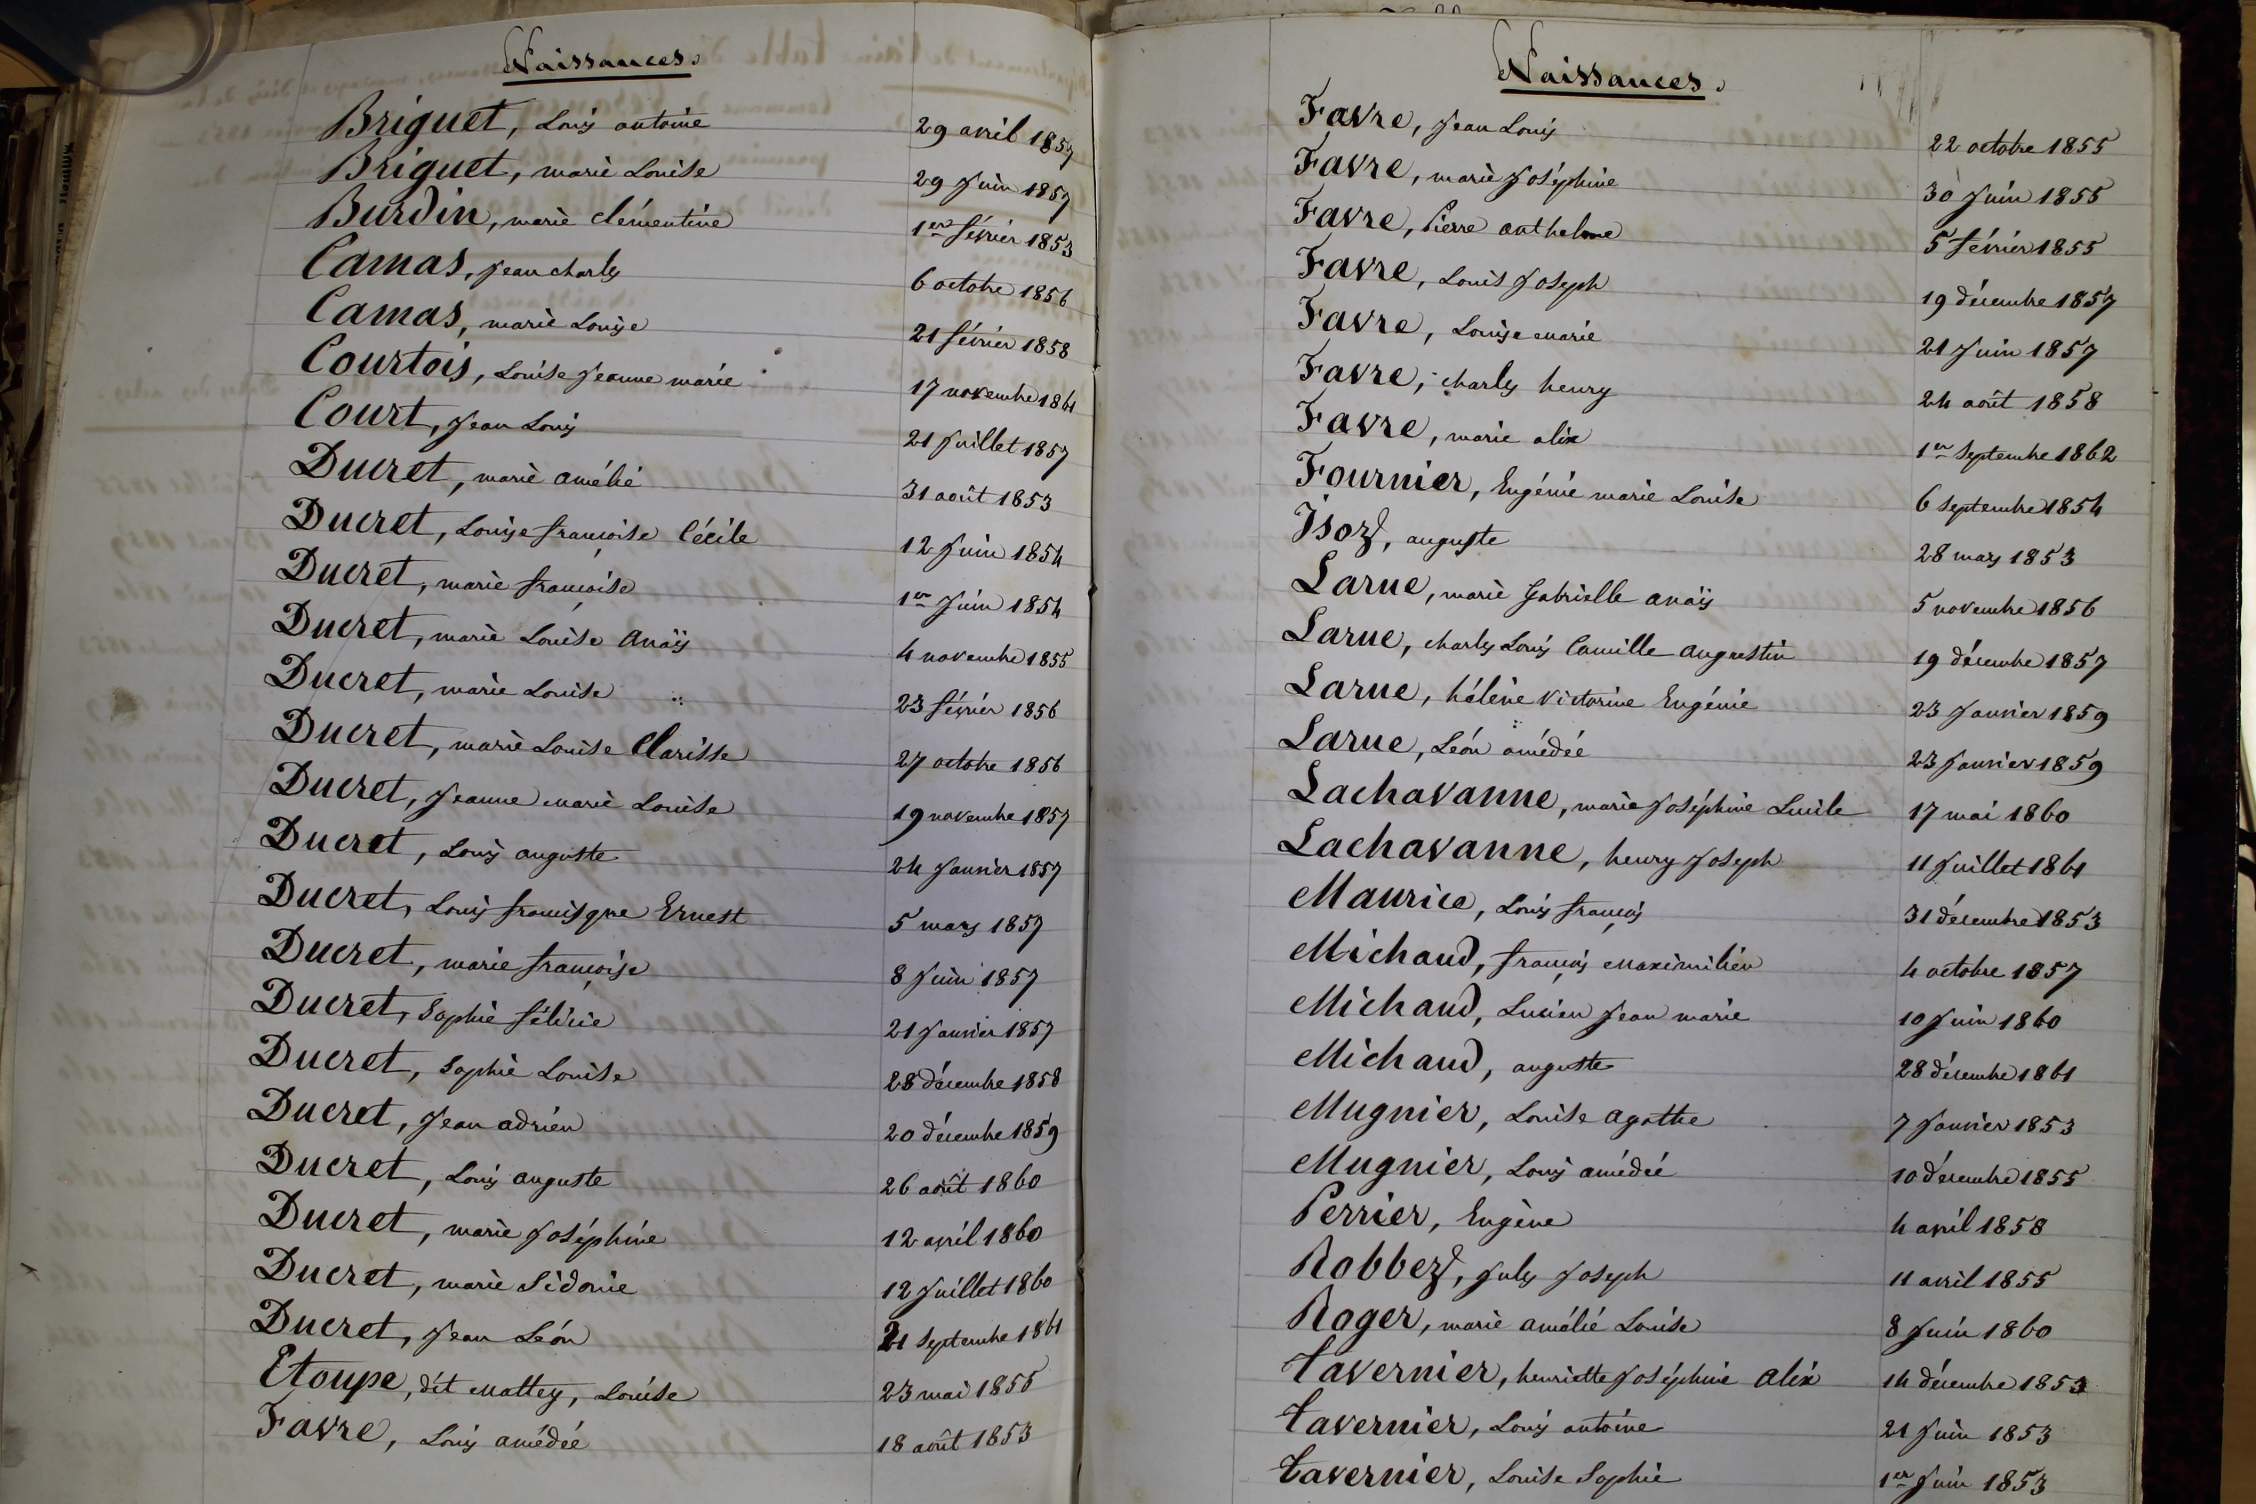 Naissances.
Briguet, Louis antoine 29 avril 1857
Briguet, marie Louise 29 Juin 1857
Burdin, marie clémentine 1er février 1853
Camas, Jean charles 6 octobre 1856
Camas, marie Louise 21 février 1858
Courtois, Louise Jeanne marie 17 novembre 1861
Court, Jean Louis 21 Juillet 1857
Ducret, marie amélie 31 août 1853
Ducret, Louise françoise Cécile 12 Juin 1854
Ducret, marie françoise 1er Juin 1854
Ducret, marie Louise Anaïs 4 novembre 1855
Ducret, marie Louise 23 février 1856
Ducret, marie Louise Clarisse 27 octobre 1856
Ducret, Jeanne marie Louise 19 novembre 1857
Ducret, Louis auguste 24 Janvier 1857
Ducret, Louis francisque Ernest 5 mars 1857
Ducret, marie françoise 8 Juin 1857
Ducret, Sophie félicie 21 Janvier 1857
Ducret, Sophie Louise 28 décembre 1858
Ducret, Jean adrien 20 décembre 1859
Ducret, Louis auguste 26 août 1860
Ducret, marie Joséphine 12 avril 1860
Ducret, marie Sidonie 12 Juillet 1860
Ducret, Jean Léon 21 septembre 1861
Etoupe, dit Mattey, Louise 23 mai 1855
Favre, Louis amédée 18 août 1853
Naissances.
Favre, Jean Louis 22 octobre 1855
Favre, marie Joséphine 30 Juin 1855
Favre, Pierre anthelme 5 février 1855
Favre, Louis Joseph 19 décembre 1857
Favre, Louise marie 21 Juin 1857
Favre, charles henry 24 août 1858
Favre, marie alix 1er Septembre 1862
Fournier, Eugénie marie Louise 6 septembre 1854
Jsoz, auguste 28 mars 1853
Larue, marie Gabrielle anaïs 5 novembre 1856
Larue, charles Louis Camille augustin 19 décembre 1857
Larue, hélène victorine Eugénie 23 Janvier 1859
Larue, Léon amédée 23 Janvier 1859
Lachavanne, marie Joséphine Lucile 17 mai 1860
Lachavanne, henry Joseph 11 Juillet 1861
Maurice, Louis françois 31 décembre 1853
Michaud, françois Maximilien 4 octobre 1857
Michaud, Lucien Jean marie 10 Juin 1860
Michaud, auguste 28 décembre 1861
Mugnier, Louise agathe 7 Janvier 1853
Mugnier, Louis amédée 10 décembre 1855
Perrier, Eugène 4 avril 1858
Robbez, Jules Joseph 11 avril 1855
Roger, marie amélie Louise 8 Juin 1860
Tavernier, henriette Joséphine Alix 14 décembre 1853
Tavernier, Louis antoine 21 Juin 1853
Tavernier, Louise Sophie 1er Juin 1853